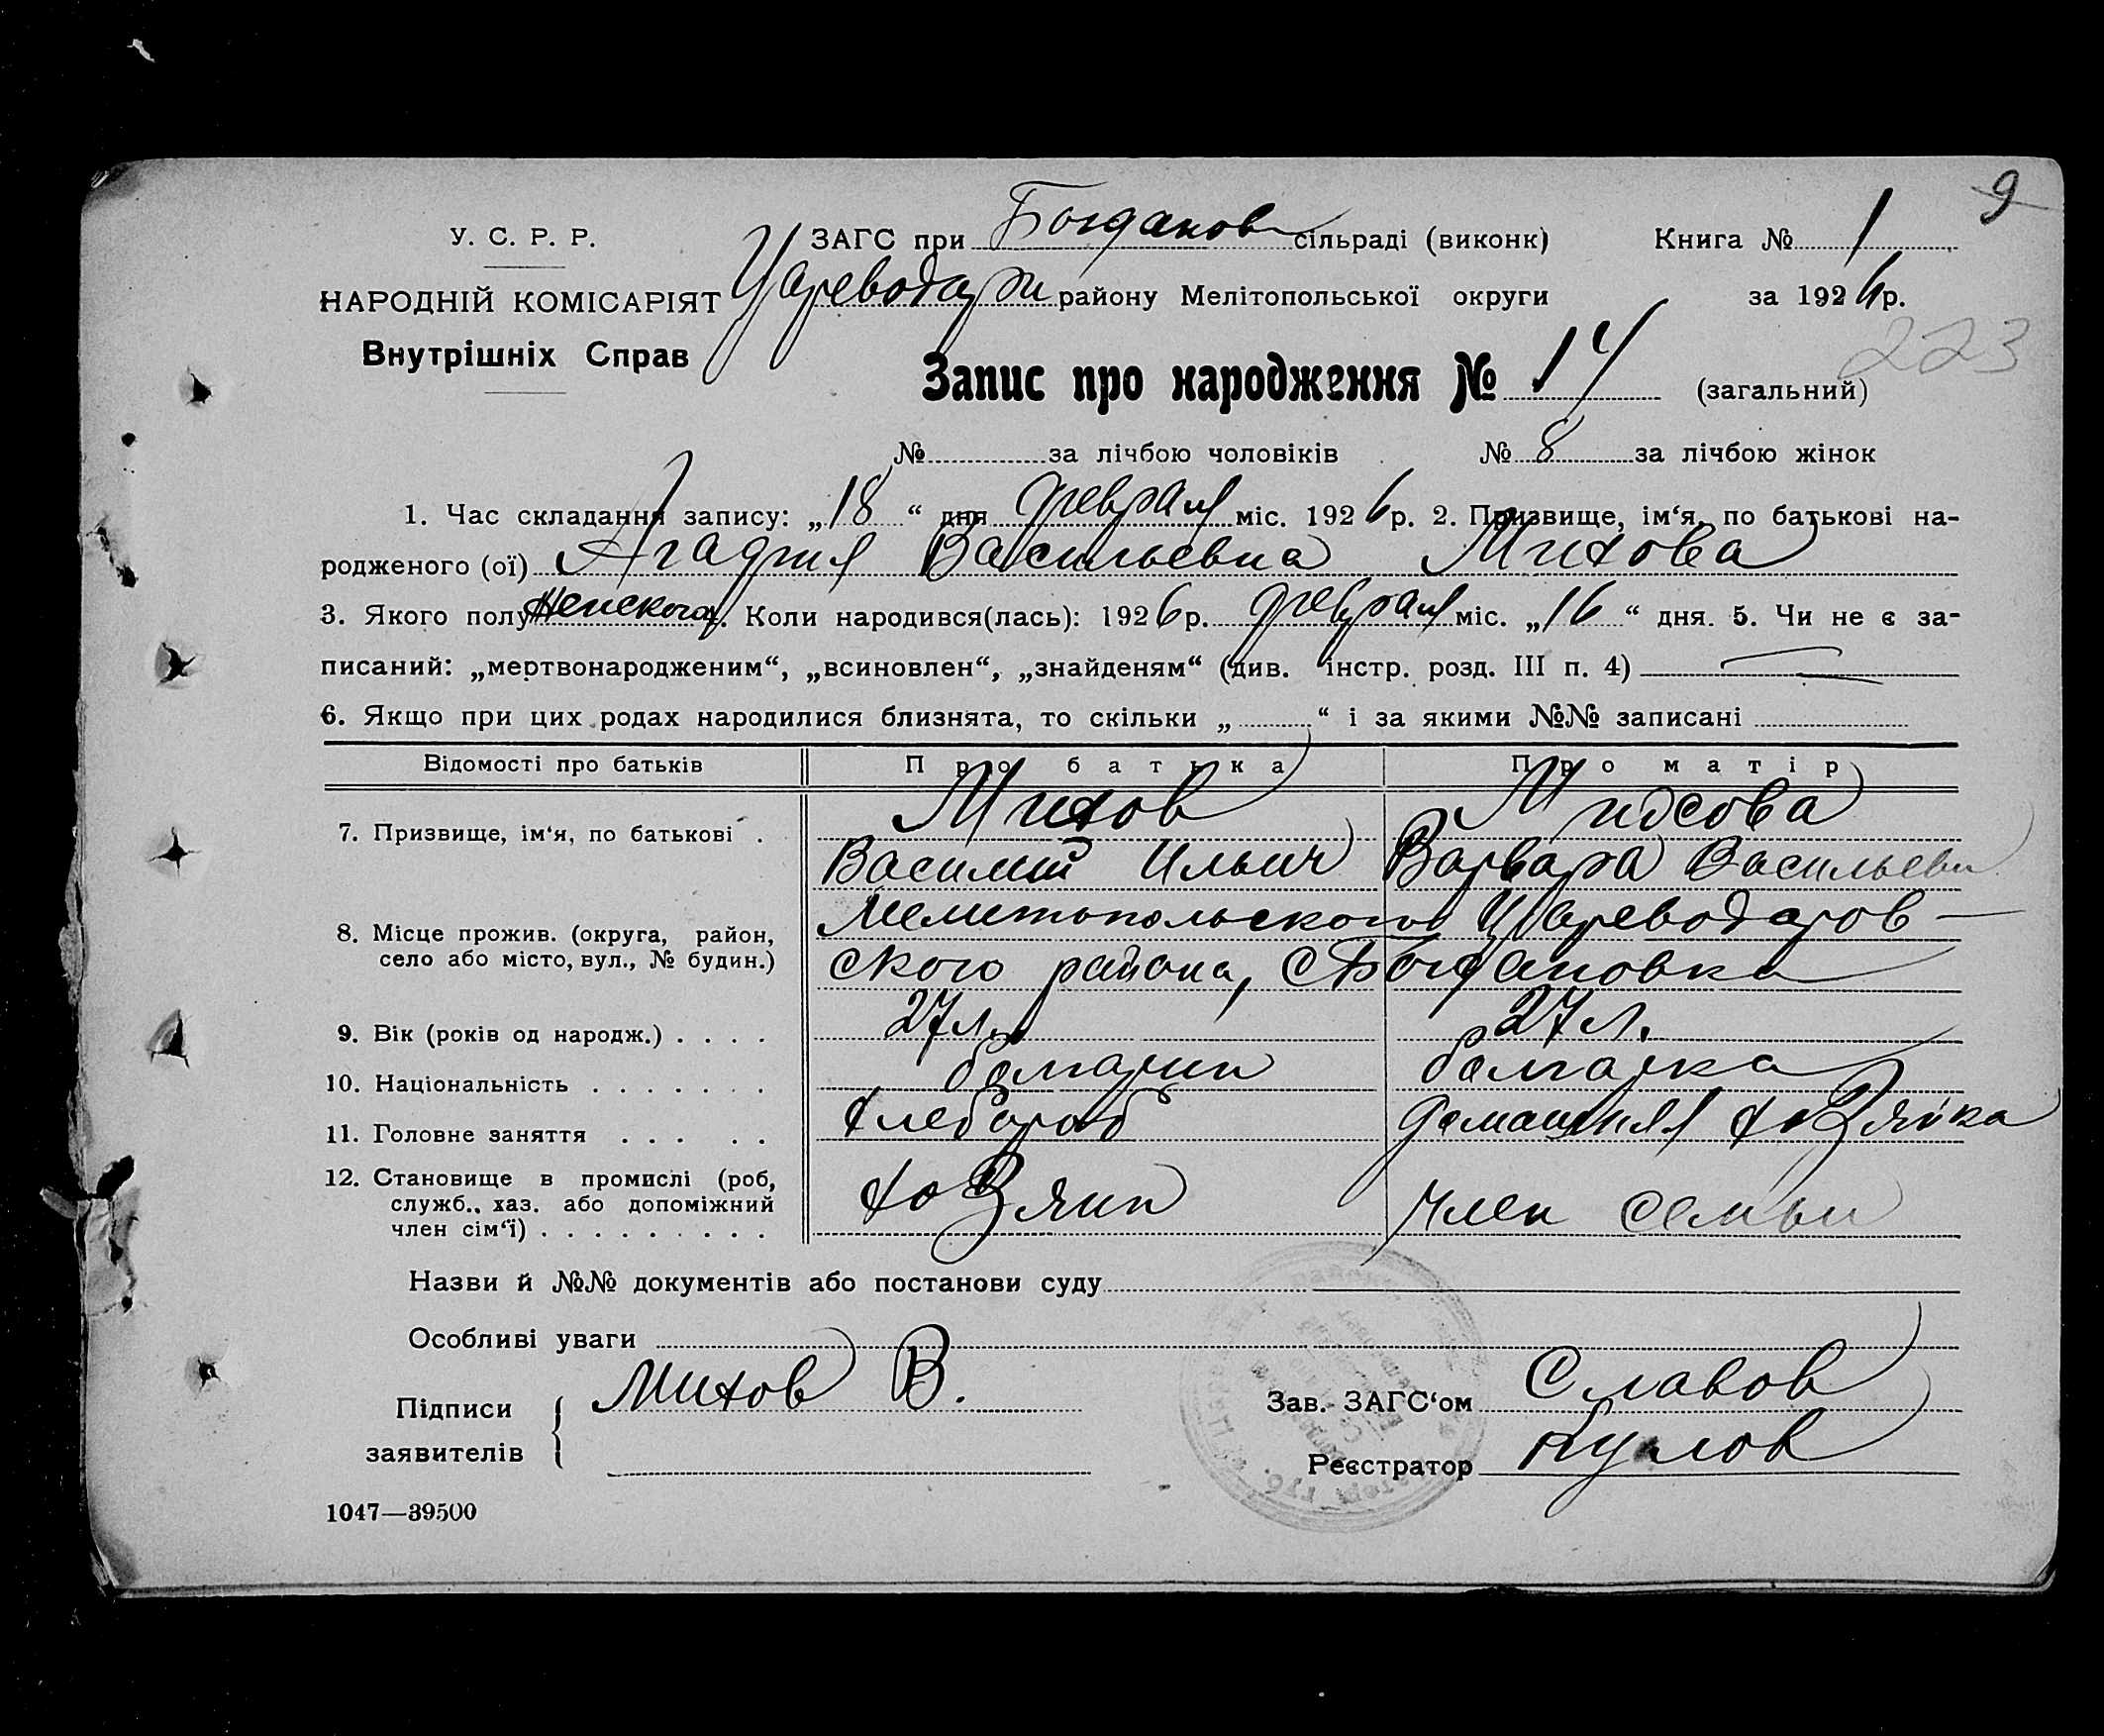 9
У. С. Р. Р.
ЗАГС при Богданов сільраді (виконк)
Книга № 1
НАРОДНІЙ КОМІСАРІЯТ
Цареводар району Мелітопольської округи
за 1926 р.
Внутрішніх Справ
223
Запис про народження № 14 (загальний)
№ за лічбою чоловіків № 8 за лічбою жінок
1. Час складання запису: „18“ дня февраля міс. 1926 р. 2. Призвище, ім‘я, по батькові на-
родженого (ої) Агафия Васильевна Михова
3. Якого полу Женского 4. Коли народився(лась): 1926 р. февраля міс. „16“ дня. 5. Чи не є за-
писаний: „мертвонародженим“, „всиновлен“, „знайденям“ (див. інстр. розд. III п. 4) —
6. Якщо при цих родах народилися близнята, то скільки „ “ і за якими №№ записані
Відомості про батьків Про батька Про матір
7. Призвище, ім‘я, по батькові . Михов Михова
Василий Ильич Варвара Васильевн
8. Місце прожив. (округа, район, село або місто, вул., № будин.) Мелитопольского Цареводаров-
ского района, с Богдановка
9. Вік (років од народж.) . . . . 27 л. 27 л.
10. Національність . . . . . . . болгарин болгарка
11. Головне заняття . . . . . хлебороб домашняя хозяйка
12. Становище в промислі (роб,
служб., хаз. або допоміжний
член сім‘ї) . . . . . . . . . хозяин член семьи
Назви й №№ документів або постанови суду
Особливі уваги
Підписи заявителів Михов В.
Зав. ЗАГС‘ом Славов
Реєстратор Кулов
1047—39500